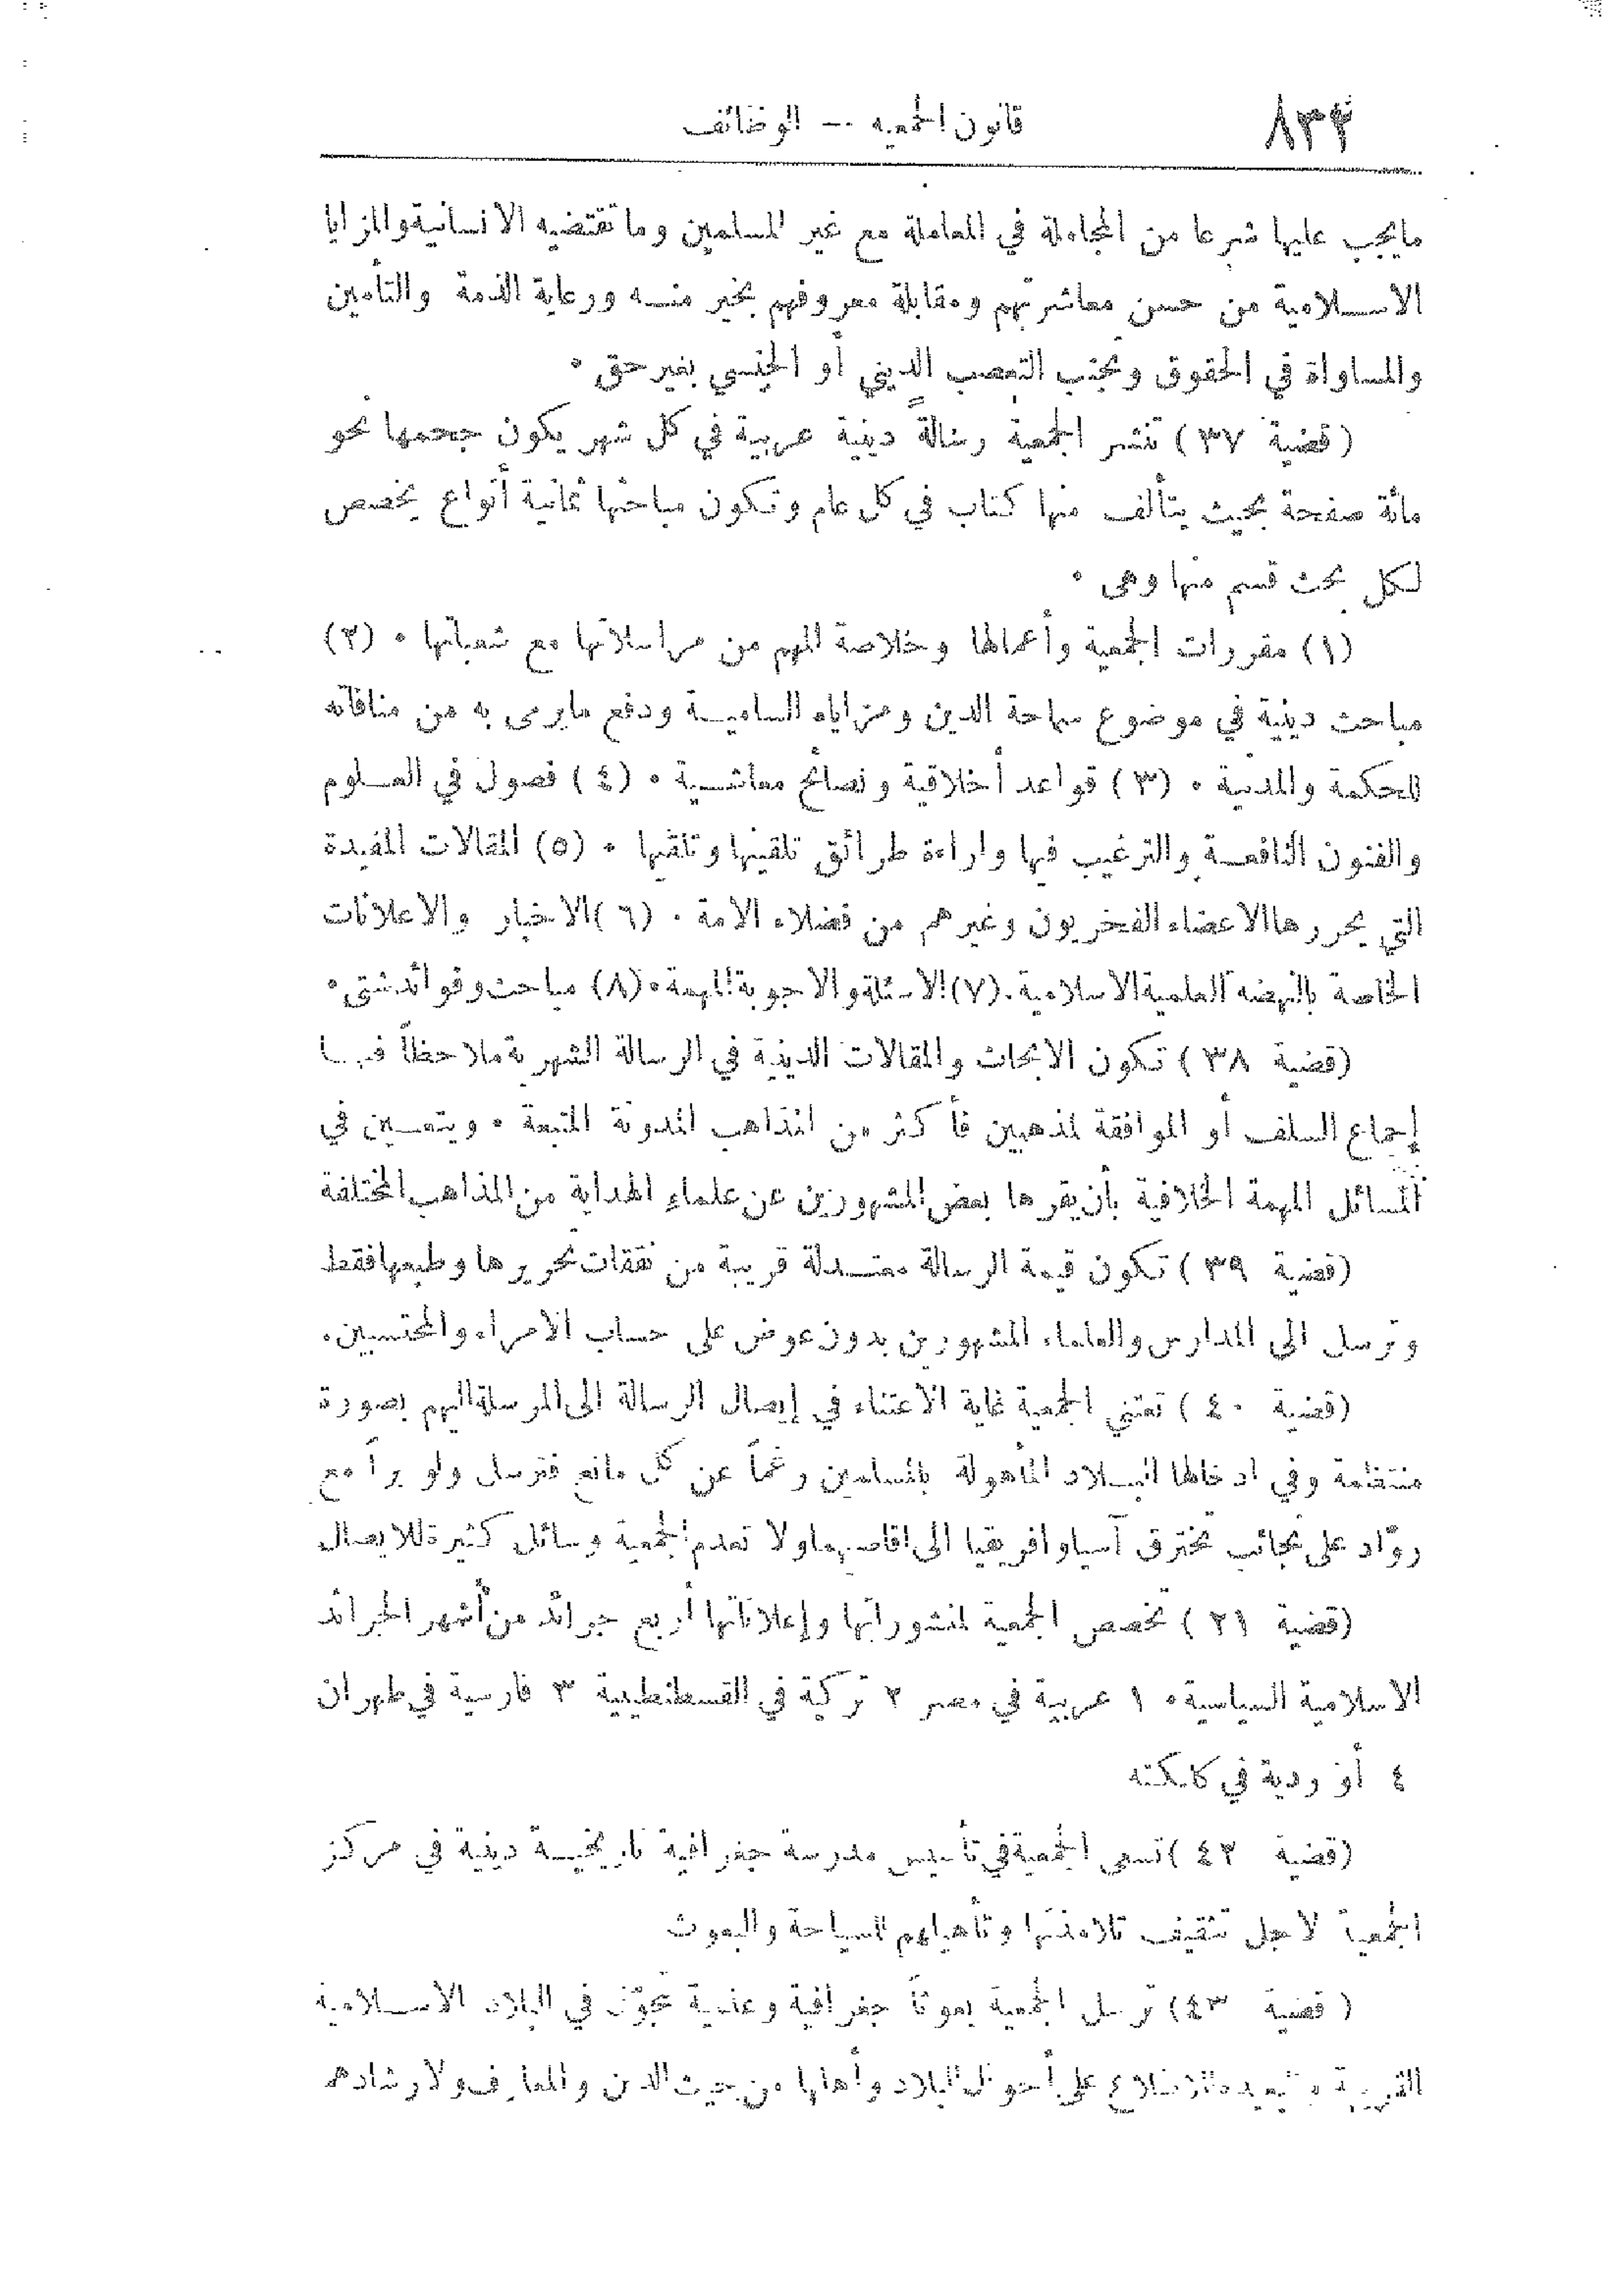 ٨٣٤ قانون الجمعيه -- الوظائف
مايجب عليها شرعا من المجاملة في المعاملة مع غير المسلمين وما تقتضيه الانسانية والمزايا
الاسلامية من حسن معاشرتهم ومقابلة معروفهم بخير منه ورعاية الذمة والتأمين
والمساواة في الحقوق وتجنب التعصب الديني أو الجنسي بغير حق ٠
(قضية ٣٧) تنشر الجمعية رسالةً دينية عربية في كل شهر يكون حجمها نحو
مائة صفحة بحيث يتألف منها كتاب في كل عام وتكون مباحثها ثمانية أنواع يخصص
لكل بحث قسم منها وهى ٠
(١) مقررات الجمعية وأعمالها وخلاصة المهم من مراسلاتها مع شعباتها ٠ (٢)
مباحث دينية في موضوع سماحة الدين ومزاياه السامية ودفع مايرمى به من منافاته
للحكمة والمدنية ٠ (٣) قواعد أخلاقية ونصائح معاشية ٠ (٤) فصول في العلوم
والفنون النافعة والترغيب فيها واراءة طرائق تلقينها وتلقيها ٠ (٥) المقالات المفيدة
التي يحررها الاعضاء الفخريون وغيرهم من فضلاء الامة ٠ (٦) الاخبار والاعلانات
الخاصة بالنهضة العلمية الاسلامية ٠ (٧) الاسئلة والاجوبة المهمة ٠ (٨) مباحث وفوائد شتى ٠
(قضية ٣٨) تكون الابحاث والمقالات الدينية في الرسالة الشهرية ملاحظاً فيها
إجماع السلف أو الموافقة لمذهبين فأكثر من المذاهب المدونة المتبعة ٠ ويتعين في
المسائل المهمة الخلافية بأن يقرها بعض المشهورين عن علماءِ الهداية من المذاهب المختلفة
(قضية ٣٩) تكون قيمة الرسالة معتدلة قريبة من نفقات تحريرها وطبعها فقط
وترسل الى المدارس والعلماء المشهورين بدون عوض على حساب الامراء والمحتسبين ٠
(قضية ٤٠) تعتني الجمعية غاية الاعتناء في إيصال الرسالة الى المرسلة اليهم بصورة
منتظمة وفي ادخالها البلاد المأهولة بالمسلمين رغماً عن كل مانع فترسل ولو براً مع
روّاد على نجائب تخترق آسيا وافريقيا الى اقاصيهما ولا تعدم الجمعية وسائل كثيرة للايصال
(قضية ٢١) تخصص الجمعية لمنشوراتها وإعلاناتها أربع جرائد من أشهر الجرائد
الاسلامية السياسية ٠ ١ عربية في مصر ٢ تركية في القسطنطينية ٣ فارسية في طهران
٤ أو ردية في كلكته
(قضية ٤٢) تسعى الجمعية في تأسيس مدرسة جغرافية تاريخية دينية في مركز
الجمعية لاجل تثقيف تلامذتها وتأهيلهم للسياحة والبعوث
(قضية ٤٣) ترسل الجمعية بعوثاً جغرافية وعلمية تجوّل في البلاد الاسلامية
القريبة والبعيدة للاطلاع على أحوال البلاد وأهلها من حيث الدين والمعارف ولارشادهم